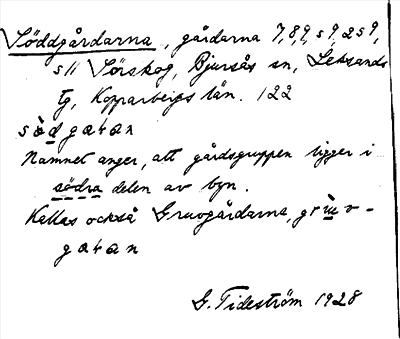 Söddgårdarna, gårdarna 7, 8, 9, s 9, 2 s 9,
s 11 Sörskog, Bjursås sn, Leksands
tg, Kopparbergs län. 122
sòdgaran
Namnet anger, att gårdsgruppen ligger i
södra delen av byn.
Kallas också Gruvgårdarna, grùv-
garan
G. Tideström 1928